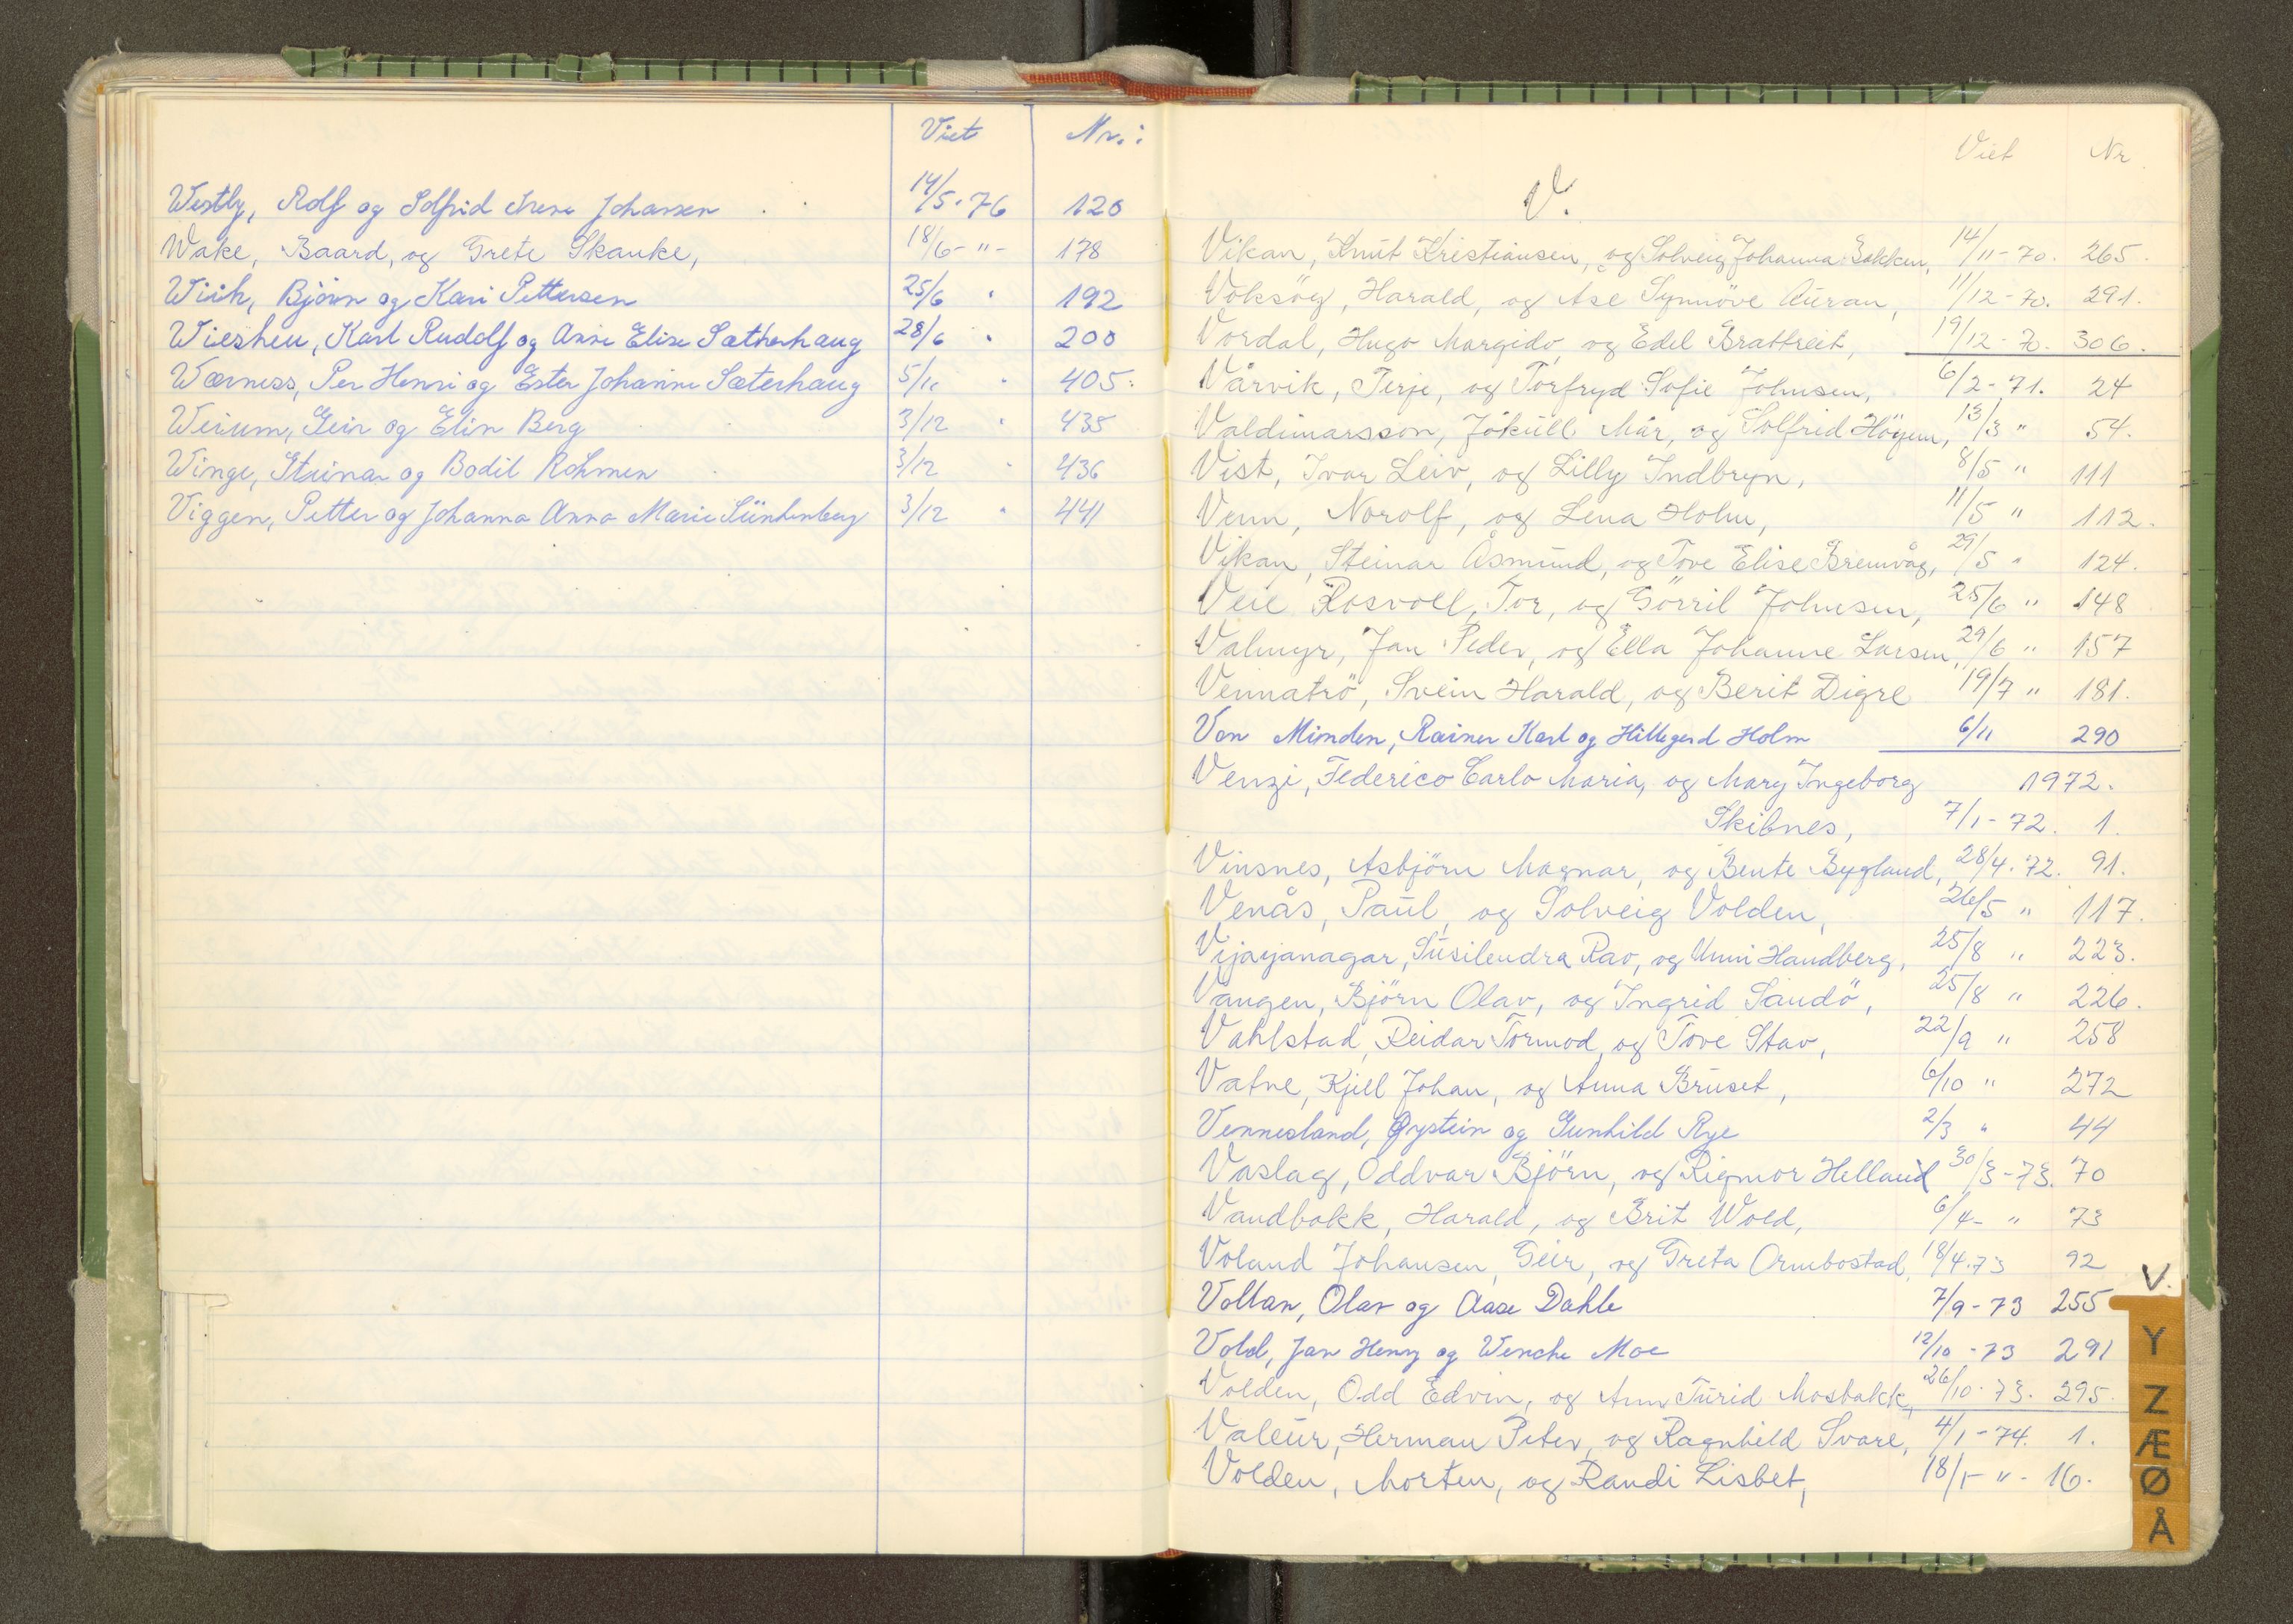 Viet Nr.:
Westly, Rolf og Solfrid Irene Johansen 14/5-76 120
Wake, Baard, og Grete Skauke, 18/6-"- 178
Wiik, Björn og Kari Pettersen 25/6 " 192
Wiesheu, Karl Rudolf og Anne Elise Sætherhaug 28/6 " 200
Wærness, Per Henri og Ester Johanne Sæterhaug 5/11 " 405.
Weium, Geir og Elin Berg 3/12 " 435
Winge, Steinar og Bodil Rohmen 3/12 " 436
Viggen, Petter og Johanna Anna Marie 3/12 " 441
Viet Nr.
V.
Vikan, Knut Kristiansen, og Solveig Johanna Bakken, 14/11-70. 265.
Voksöy, Harald, og Ase Synnöve Auran, 11/12-70. 291.
Vordal, Hugo Margido, og Edel Brattreit, 19/12-70. 306.
Vårvik, Terje, og Torfryd Sofie Johnsen, 6/2-71. 24
Valdimarsson, Jökull Már, og Solfrid Höyem, 13/3 " 54.
Vist, Ivar Leiv, og Lilly Indbryn, 8/5 " 111
Venn, Norolf, og Lena Holm, 11/5 " 112.
Vikan, Steinar Åsmund, og Tove Elise Bremvåg, 29/5 " 124.
Veie Rosvoll, Tor, og Görril Johnsen, 25/6 " 148
Valmyr, Jan Peder, og Ella Johanne Larsen, 29/6 " 157
Vennatrö, Svein Harald, og Berit Digre 19/7 " 181.
Von Minden, Rainer Karl og Hillegerd Holm 6/11 290
Venzi, Federico Carlo Maria, og Mary Ingeborg 1972.
Skibnes, 7/1-72. 1.
Vinsnes, Asbjörn Magnar, og Bente Bygland, 28/4.72. 91.
Venås, Paul, og Solveig Volden, 26/5 " 117.
Vijayanagar, Susilendra Rao, og Unni Handberg, 25/8 " 223.
Vangen, Björn Olav, og Ingrid Sandö, 25/8 " 226.
Vahlstad, Reidar Tormod, og Tove Stav, 22/9 " 258
Vatne, Kjell Johan, og Anna Bruset, 6/10 " 272
Vennesland, Øystein og Gunhild Rye 2/3 " 44
Vaslag, Oddvar Björn, og Rigmor Helland 30/3-73. 70
Vandbakk, Harald, og Brit Wold, 6/4- " 73
Voland Johansen, Geir, og Greta Ormbostad, 18/4.73 92
Voltan, Olav og Aase Dahle 7/9-73 255
Vold, Jan Henry og Wenche Moe 12/10-73 291
Volden, Odd Edvin, og Ann Turid Mosbakk, 26/10-73. 295.
Valeur, Herman Peter, og Ragnhild Svare, 4/1-74. 1.
Volden, Morten, og Randi Lisbet, 18/1-"- 16.
V.
Y
Z
Æ
Ø
Å